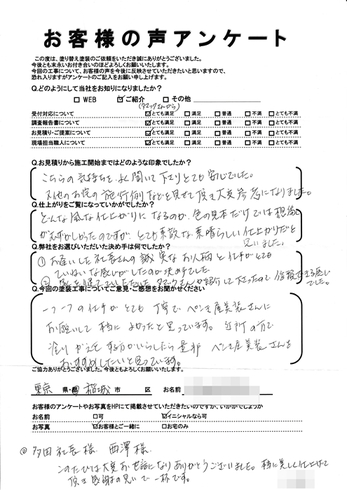 お客様の声アンケート
この度は、塗り替え塗装のご依頼をいただき誠にありがとうございました。
今後とも末永いお付き合いのほどよろしくお願いいたします。
今回の工事について、お客様の声を今後に反映させていただきたいと思いますので、
恐れ入りますがアンケートのご記入をお願い申し上げます。
Q.どのようにして当社をお知りになりましたか?
□ WEB ☑ ご紹介 □ その他
受付対応について ☑とても満足 □満足 □普通 □不満 □とても不満
調査報告書について ☑とても満足 □満足 □普通 □不満 □とても不満
お見積り・ご提案について ☑とても満足 □満足 □普通 □不満 □とても不満
現場担当職人について ☑とても満足 □満足 □普通 □不満 □とても不満
Q.お見積りから施工開始まではどのような印象でしたか?
こちらの気持ちを よく聞いて下さり とても安心でした。
又他のお宅の施行例などを見せて頂き大変参考になりました。
Q.仕上がりをご覧になっていかがでしたか?
どんな風な仕上がりになるのか、色の見本だけでは想像
がむずかしかったのですが とても素敵な素晴らしい仕上がりだと
思いました。
Q.弊社をお選びいただいた決め手は何でしたか?
Q.今回の塗装工事についてご意見・ご感想をお聞かせください
一つ一つの仕事がとても丁寧で、ペンキ屋美装さんに
お願いして 本当に よかったと思っています。近所の方で
塗りかえをする方がいらしたら是非 ペンキ屋美装さんを
おすすめしたいと思っています。
ご協力ありがとうございました。今後ともよろしくお願いいたします。
東京 県・都 稲城 市 区 お名前
お客様のアンケートやお写真をHPにて掲載させていただきたいのですが、いかがでしょうか
お名前 □可 ☑イニシャルなら可
お写真 ☑お客様とご一緒に □お宅のみ
西澤様
このたびは大変お世話になりありがとうございました。本当に美しく仕上げて
頂き感謝の思いで一杯です。